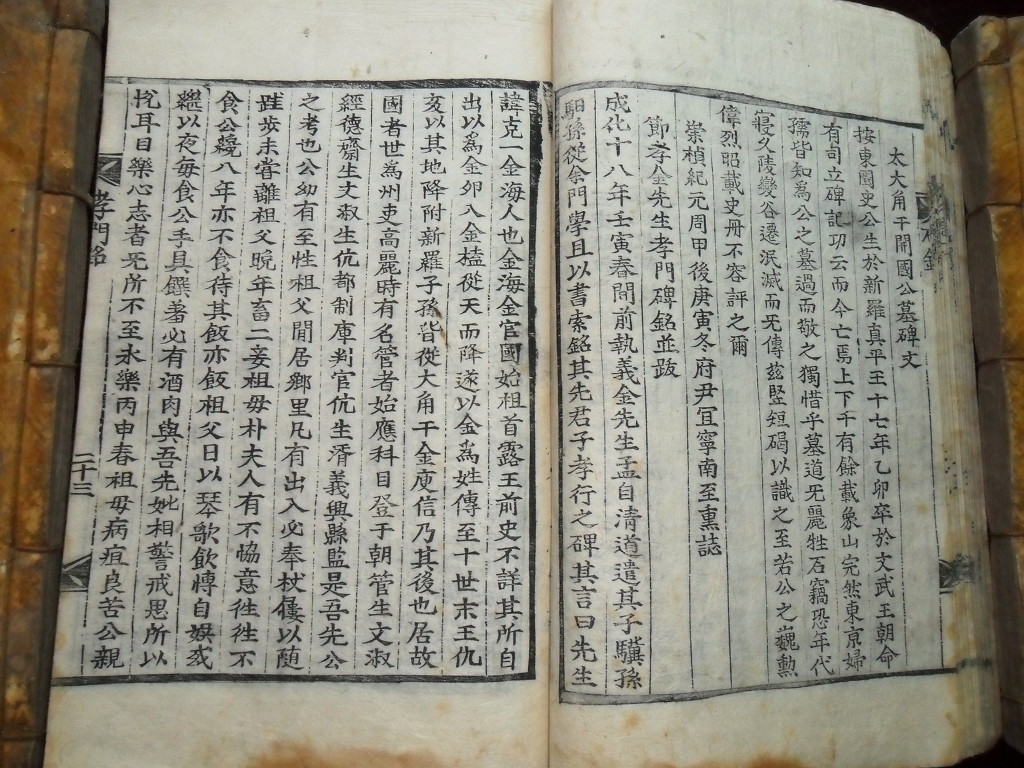 太大角干開國公墓碑文
按東國史公生於新羅真平王十七年乙卯卒於文武王朝命
有司立碑記功云而今亡焉上下千有餘載象山宛然東京婦
孺皆知為公之墓過而敬之獨惜乎墓道旡麗牲石竊恐年代
寢久陵夔谷遷泯滅而旡傳玆竪短碣以識之至若公之巍勳
偉烈昭載史冊不容評之爾
崇楨紀元周甲後庚寅冬府尹宜寧南至熏誌
節孝金先生孝門碑銘並跋
成化十八年壬寅春間前執義金先生孟自清道遣其子驥孫
馹孫從余門學且以書索銘其先君子孝行之碑其言曰先生
諱克一金海人也金海金官國始祖首露王前史不詳其所自
出以為金卵入金榼從天而降遂以金為姓傳至十世末王仇
亥以其地降附新羅子孫皆從大角干金庾信乃其後也居故
國者世為州吏高麗時有名管者始應科目登于朝管生文淑
經德齋生文淑生伉都制庫判官伉生湑義興縣監是吾先公
之考也公幼有至性祖父閒居鄉里凡有出入必奉杖屨以随
跬步未嘗離祖父晚年畜二妾祖母朴夫人有不恊意徃徃不
食公纔八年亦不食待其飯亦飯祖父日以琴歌飲博自娛或
繼以夜每食公手具饌著必有酒肉與吾先妣相警戒思所以
恱耳目樂心志者旡所不至永樂丙申春祖母病疽良苦公親
孝門銘
二十三